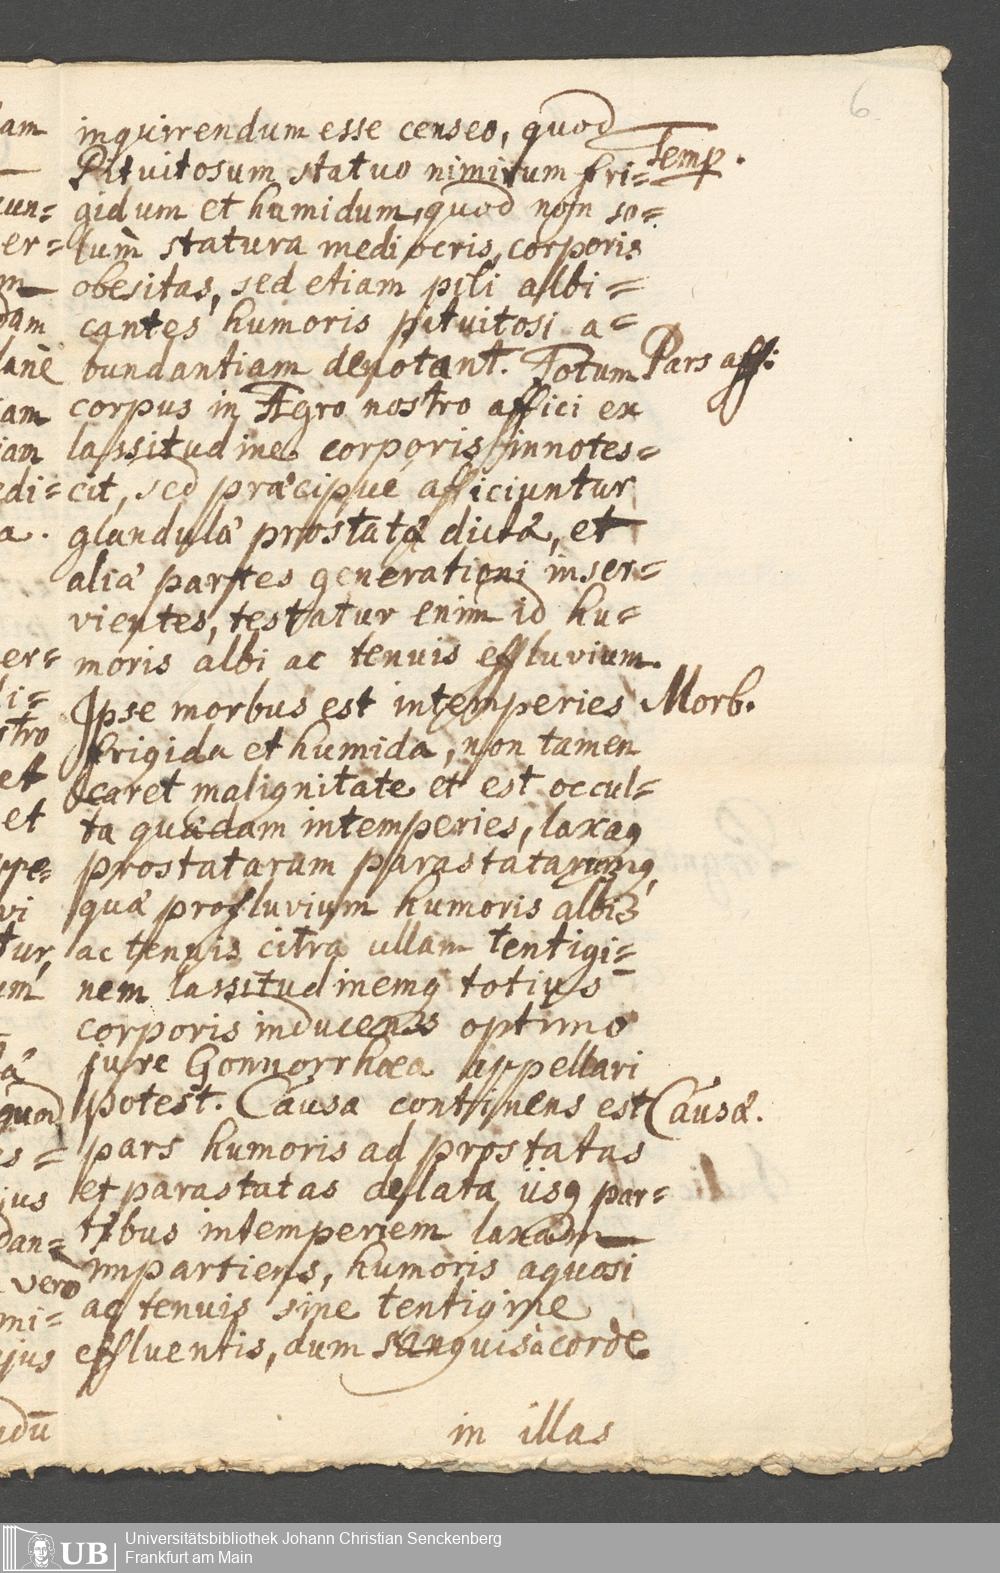 6
inquirendum esse censeo, quod
Temp.
Pituitosum statuo nimirum fri=
gidum et humidum, quod non so=
lum statura mediocris, corporis
obesitas, sed etiam pili albi=
cantes humoris pituitosi a=
bundantiam denotant. Totum
Pars aff:
corpus in Ægro nostro affici ex
lassitudine corporis innotes=
cit, sed præcipuè afficiuntur
glandulæ prostatæ dictæ, et
aliæ partes generationi inser=
vientes, testatur enim id hu=
moris albi ac tenuis effluvium.
Ipse morbus est intemperies
Morb.
frigida et humida, non tamen
caret malignitate et est occul=
ta quædam intemperies, laxaq
prostatarum parastatarumq,
quæ profluvium humoris albi
ac tenuis citra ullam tentigi=
nem lassitudinemq totius
corporis inducens optimo
jure Gonnorrhœa appellari
potest. Causa continens est
Causæ.
pars humoris ad prostatas
et parastatas delata iisq par=
tibus intemperiem laxam
impartiens, humoris aquosi
ac tenuis sine tentigine
effluentis, dum sanguis à corde
in illas
am
cun=
er=
m
dam
lanè
iam
iam
edi=
a.
er=
li=
stro
et
et
ppe=
vi
tur,
um
quod
es=
jus
dan=
vero
mi=
ejus
ndū
UB
Universitätsbibliothek Johann Christian Senckenberg
Frankfurt am Main